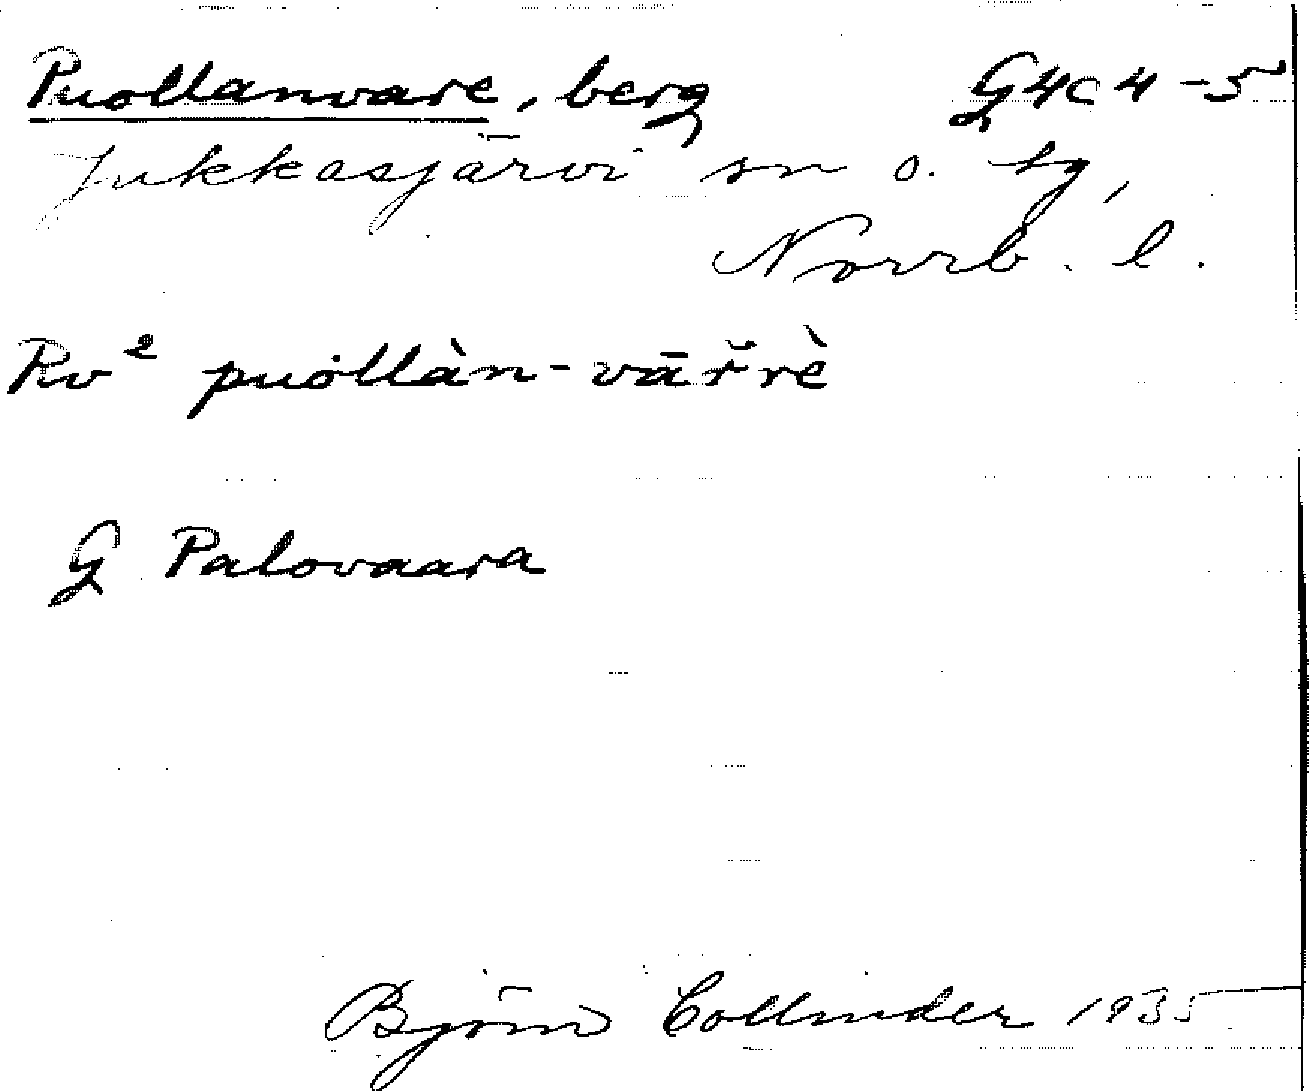 Puollanvare, berg G4c4-5
Jukkasjärvi sn o. tg,
Norrb. l.
Rv² puȯllàn-vāřrè
G Palovaara
Björn Collinder 1935